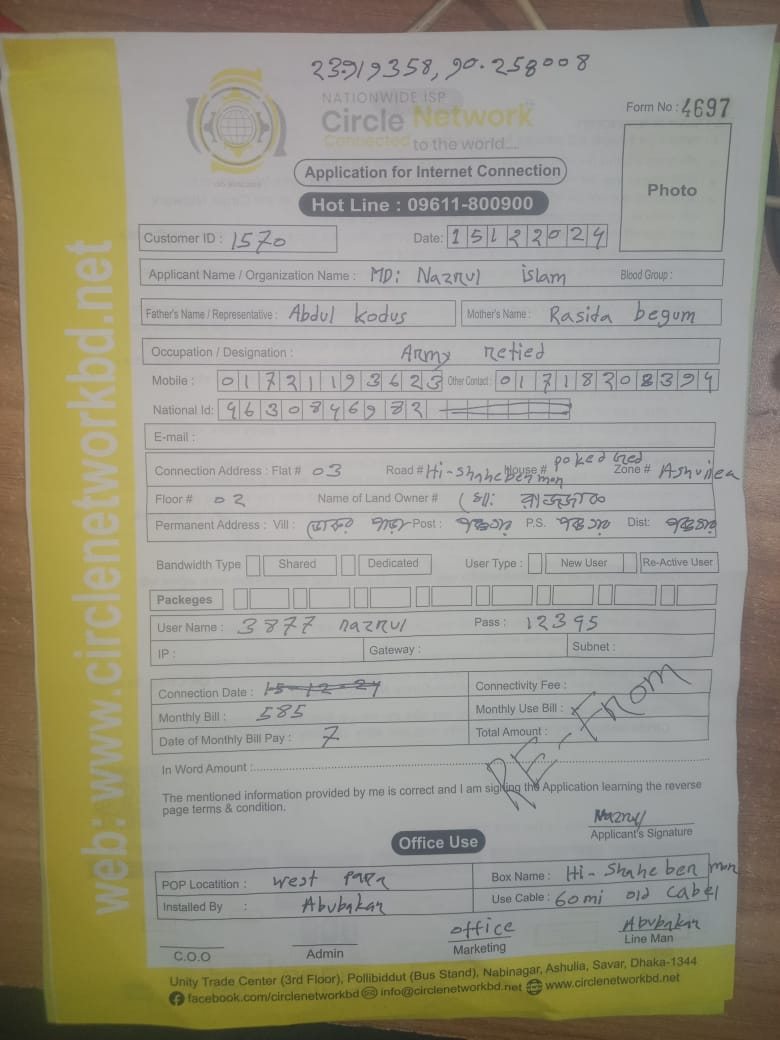 23.919358, 90.258008
NATIONWIDE ISP
Circle Network
Connected to the world....
Form No : 4697
Application for Internet Connection
Photo
Hot Line : 09611-800900
Customer ID : 1570 Date: 15122024
Applicant Name / Organization Name : MD: Nazrul islam Blood Group :
Father's Name / Representative : Abdul kodus Mother's Name : Rasida begum
Occupation / Designation : Army retied
Mobile : 01721193623 Other Contact : 01718208394
National Id: 4630846982
E-mail :
Connection Address : Flat # 03 Road # Hi-Shaheben mon House # Zone #
Floor # 02 Name of Land Owner # রাজ্জাক
Permanent Address : Vill : পাড়া Post : P.S. Dist:
Bandwidth Type Shared Dedicated User Type : New User Re-Active User
Packeges
User Name : 3877 nazrul Pass : 12395
IP : Gateway : Subnet :
Connection Date : 15-12-24 Connectivity Fee :
Monthly Bill : 585 Monthly Use Bill :
Date of Monthly Bill Pay : 7 Total Amount :
RE-From
In Word Amount :
The mentioned information provided by me is correct and I am signing the Application learning the reverse
page terms & condition.
Nazrul
Applicant's Signature
Office Use
POP Locatition : West para Box Name : Hi-Shaheben mon
Installed By : Abubakar Use Cable : 60mi old cabel
office Abubakar
C.O.O Admin Marketing Line Man
Unity Trade Center (3rd Floor), Pollibiddut (Bus Stand), Nabinagar, Ashulia, Savar, Dhaka-1344
facebook.com/circlenetworkbd info@circlenetworkbd.net www.circlenetworkbd.net
web: www.circlenetworkbd.net